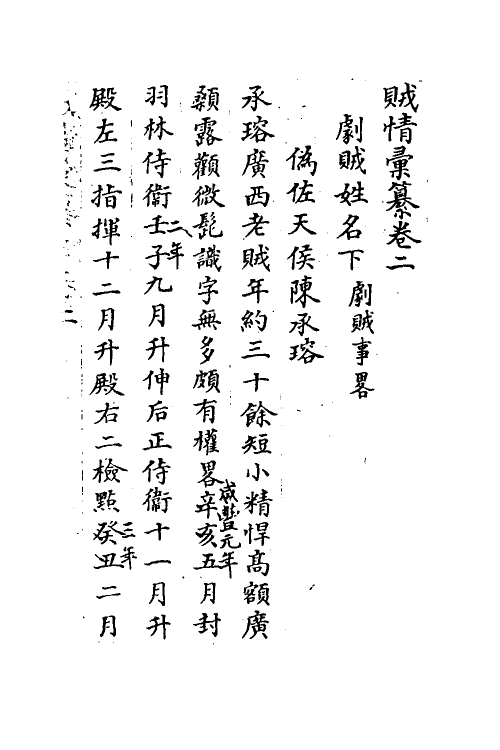 賊情彙纂卷二
劇賊姓名下 劇賊事畧
偽佐天侯陳承瑢
承瑢廣西老賊年約三十餘短小精悍高額廣
顙露顴微髭識字無多頗有權畧辛亥五月封
咸豐元年
羽林侍衞壬子九月升伸后正侍衞十一月升
二年
殿左三指揮十二月升殿右二檢點癸丑二月
三年